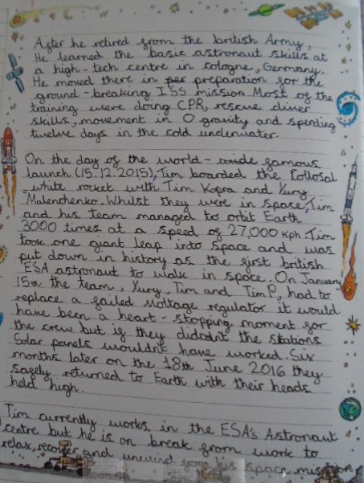 After he retired from the british Army,
He learned the basic astronaut skills at
a high-tech centre in cologne, Germany.
He moved there in per preparation for the
ground-breaking ISS mission. Most of the
training were doing CPR, rescue diver
skills, movement in 0 gravity and spending
twelve days in the cold underwater.
On the day of the world-wide famous
launch (15.12.2015), Tim boarded the
white rocket with Tim Kopra and Yury
Malenchenko. Whilst they were in space, Tim
and his team managed to orbit Earth
3000 times at a speed of 27,000 kph. Tim
took one giant leap into space and was
put down in history as the first british
ESA astronaut to walk in space. On January
15th the team, Yury, Tim and Tim P, had to
replace a failed voltage regulator it would
have been a heart-stopping moment for
the crew but if they didodnt the stations
Solar panels wouldn't have worked. Six
months later on the 18th June 2016 they
safely returned to Earth with their heads
held high.
Tim currently works in the ESA's Astronaut
centre but he is on break from work to
relax, recover and unwind from his space mission